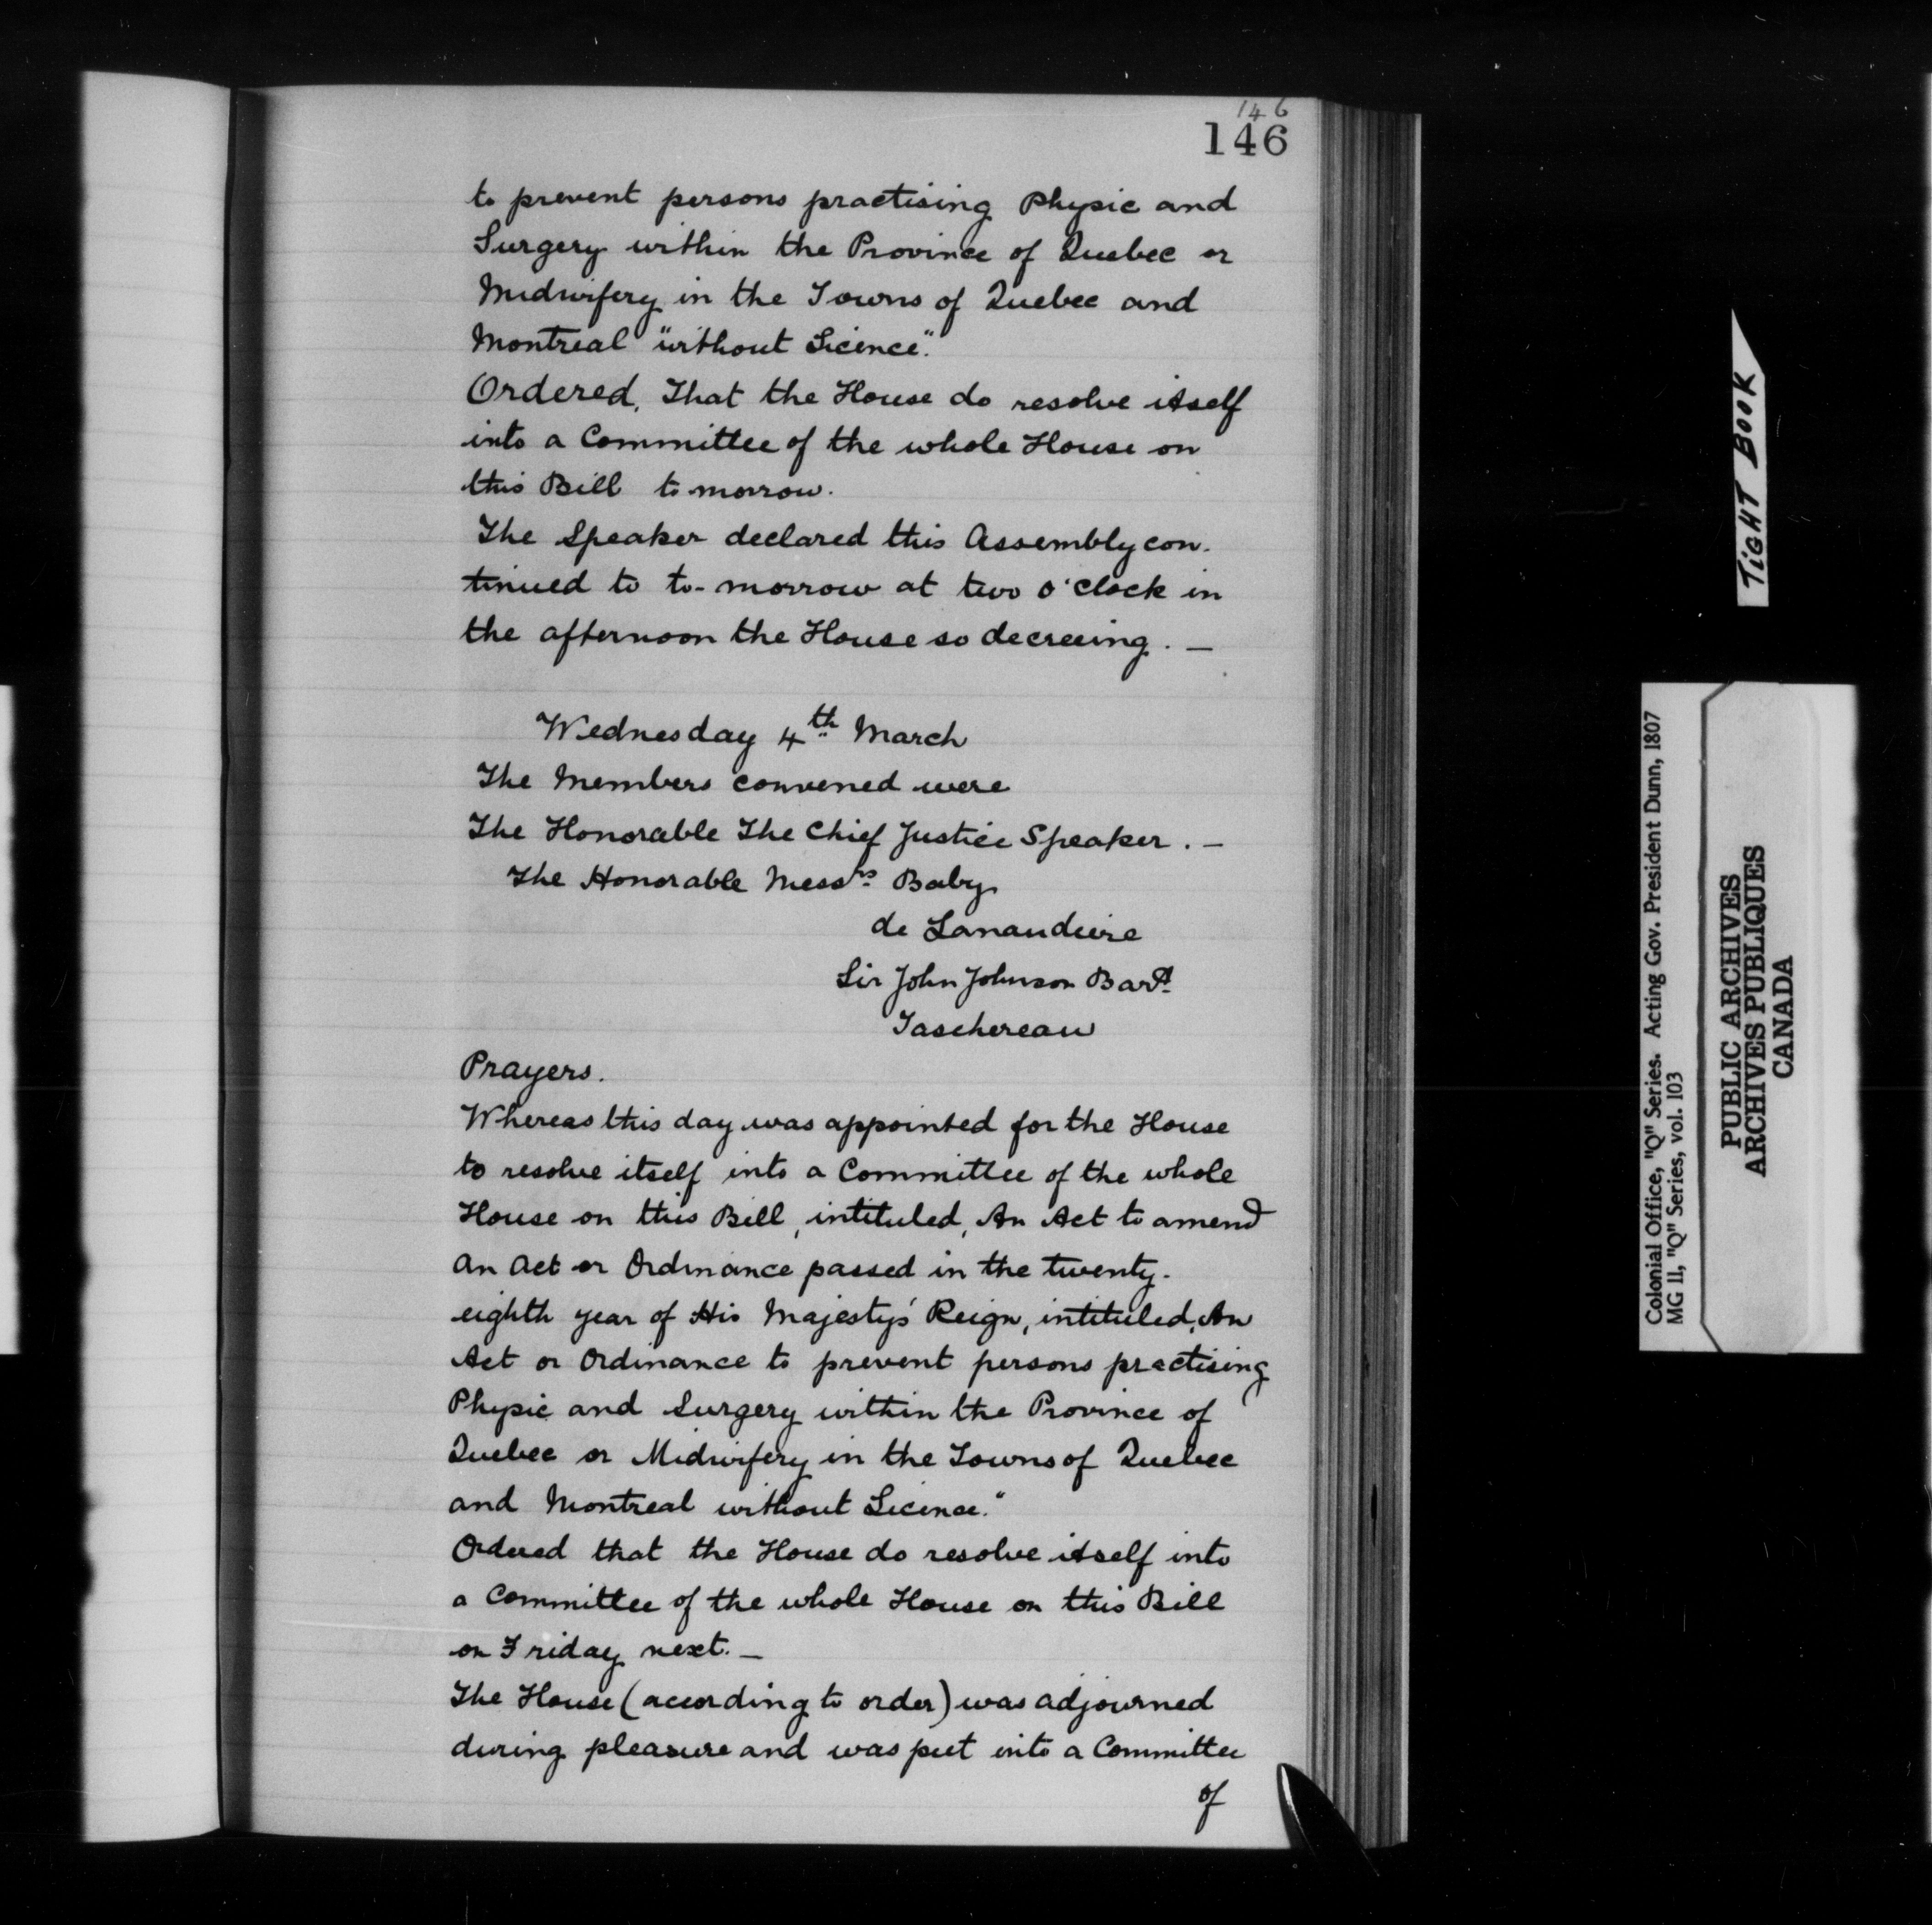 146
146
to prevent persons practising Physic and
Surgery within the Province of Quebec or
Midwifery in the Towns of Quebec and
Montreal "without Licence".
Ordered, That the House do resolve itself
into a Committee of the whole House on
this Bill to morrow.
The Speaker declared this Assembly con-
tinued to to-morrow at two o'clock in
the afternoon the House so decreeing. —
Wednesday 4th March
The Members convened were
The Honorable The Chief Justice Speaker. —
The Honorable Messrs Baby
de Lanaudiere
Sir John Johnson Bart.
Taschereau
Prayers.
Whereas this day was appointed for the House
to resolve itself into a Committee of the whole
House on this Bill, intituled, An Act to amend
an Act or Ordinance passed in the twenty-
eighth year of His Majesty's Reign, intituled, An
Act or Ordinance to prevent persons practising
Physic and Surgery within the Province of
Quebec or Midwifery in the Towns of Quebec
and Montreal without Licence."
Ordered that the House do resolve itself into
a Committee of the whole House on this Bill
on Friday next. —
The House (according to order) was adjourned
during pleasure and was put into a Committee
of
TIGHT BOOK
Colonial Office, "Q" Series. Acting Gov. President Dunn, 1807
MG 11, "Q" Series, vol. 103
PUBLIC ARCHIVES
ARCHIVES PUBLIQUES
CANADA